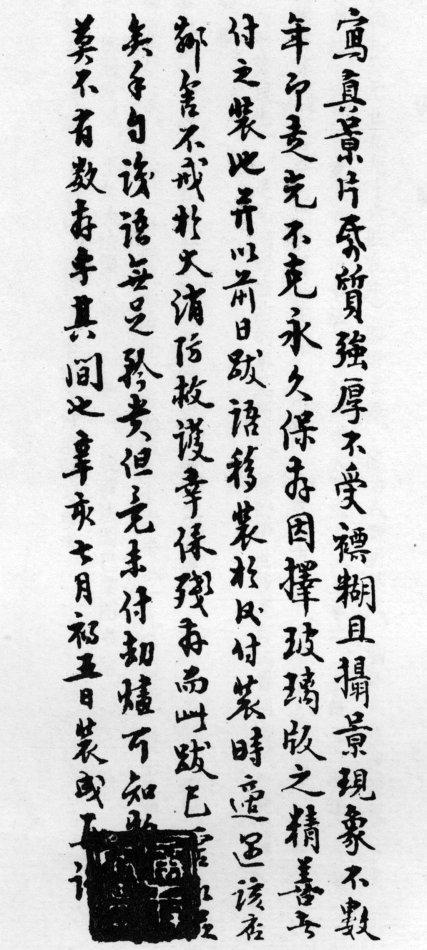 寫真景片紙質強厚不受褾糊且攝景現象不數
年即走光不克永久保存因擇玻璃版之精善者
付之裝池并以前日跋語移裝於後付裝時適遇該店
鄰舍不戒於火消防救護幸保殘存而此跋已
矣手自談語無足矜貴但竟未付劫燼可知
莫不有數存乎其間也辛亥七月初五日裝成再記